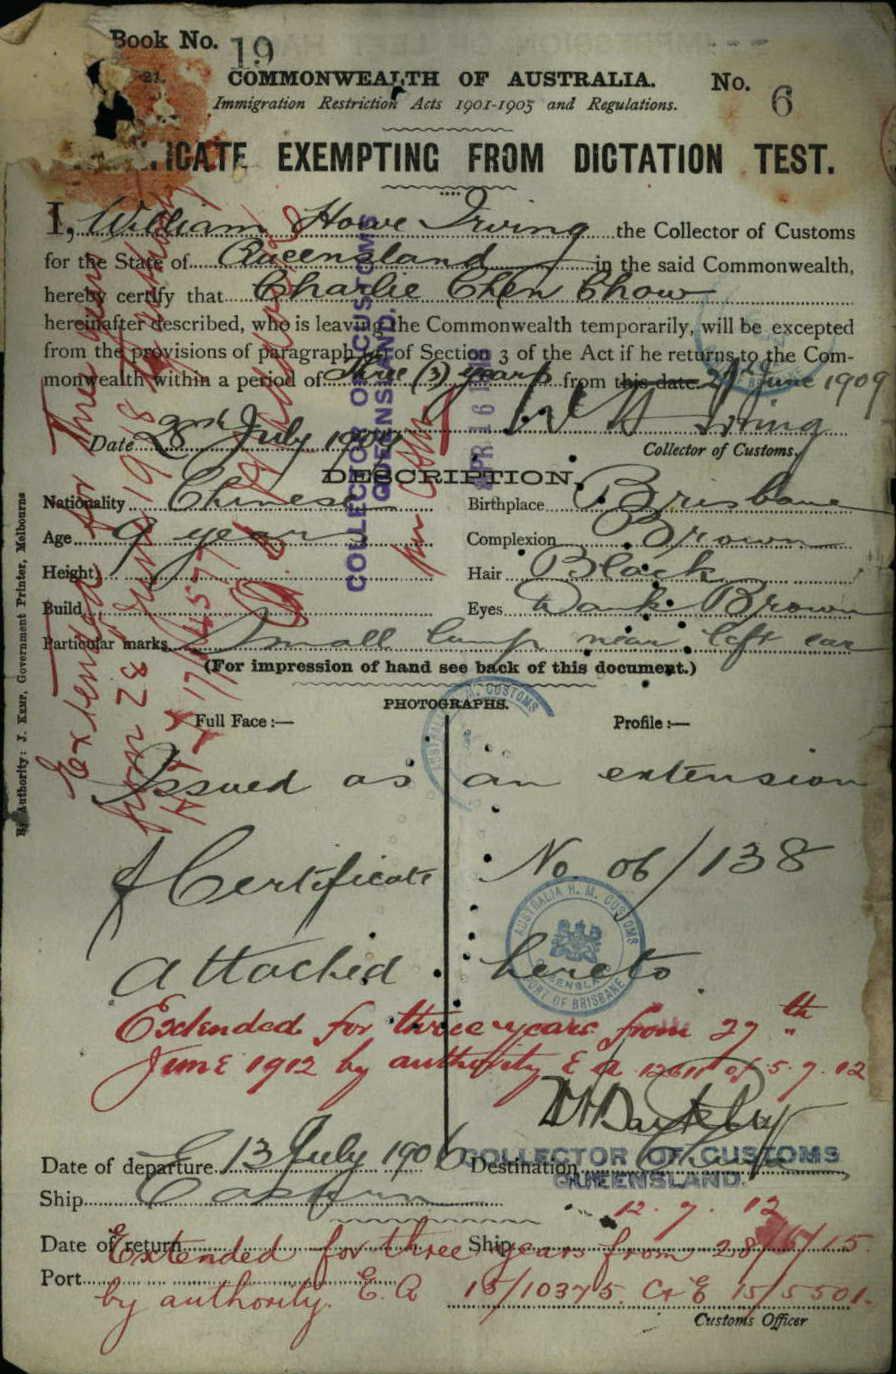 Book No. 19
21.
COMMONWEALTH OF AUSTRALIA. No. 6
Immigration Restriction Acts 1901-1905 and Regulations.
ICATE EXEMPTING FROM DICTATION TEST.
I, William Howe Irving the Collector of Customs
for the State of Queensland in the said Commonwealth,
hereby certify that Charlie Chen Chow
hereinafter described, who is leaving the Commonwealth temporarily, will be excepted
from the provisions of paragraph of Section 3 of the Act if he returns to the Com-
monwealth within a period of three (3) years from this date 28th June 1909
W H Irving
Date 2nd July 1909 Collector of Customs.
DESCRIPTION.
Nationality Chinese Birthplace Brisbane
Age 9 years Complexion Brown
Height Hair Black
Build Eyes Dark Brown
Particular marks Small lump near left ear
(For impression of hand see back of this document.)
PHOTOGRAPHS.
Full Face :— Profile :—
Issued as an extension
of Certificate No. 06/138
attached hereto
Extended for three years from 27th
June 1912 by authority E a 12611 of 5.7.12
COLLECTOR OF CUSTOMS
QUEENSLAND.
Date of departure 13 July 1906 Destination China
Ship Eastern
12.7.12
Date of return Ship
Extended for three years from 28/6/15.
Port
by authority. E. A 15/10375. C & E 15/5501.
Customs Officer
COLLECTOR OF CUSTOMS
QUEENSLAND.
APR 16
Extended for three years
from 28 June 1918
AUSTRALIA H. M. CUSTOMS
QUEENSLAND
PORT OF BRISBANE
By Authority: J. KEMP, Government Printer, Melbourne